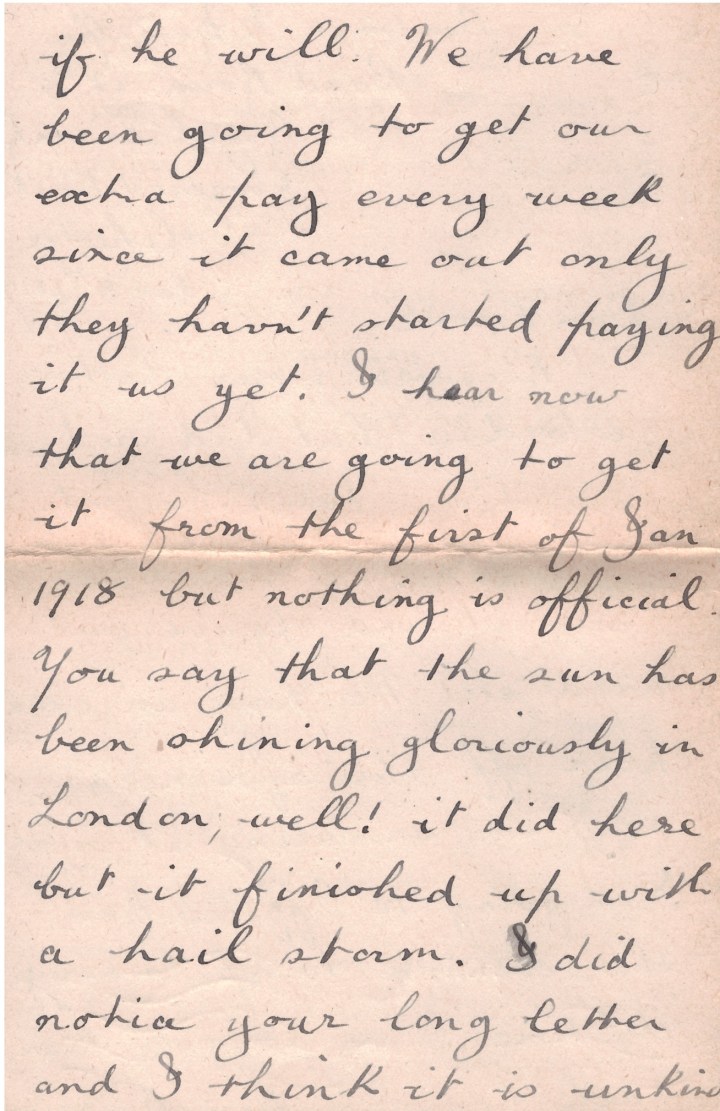 if he will. We have
been going to get our
extra pay every week
since it came out only
they havn't started paying
it us yet. I hear now
that we are going to get
it from the first of Jan
1918 but nothing is official.
You say that the sun has
been shining gloriously in
London, well! it did here
but it finished up with
a hail storm. I did
notice your long letter
and I think it is unkind